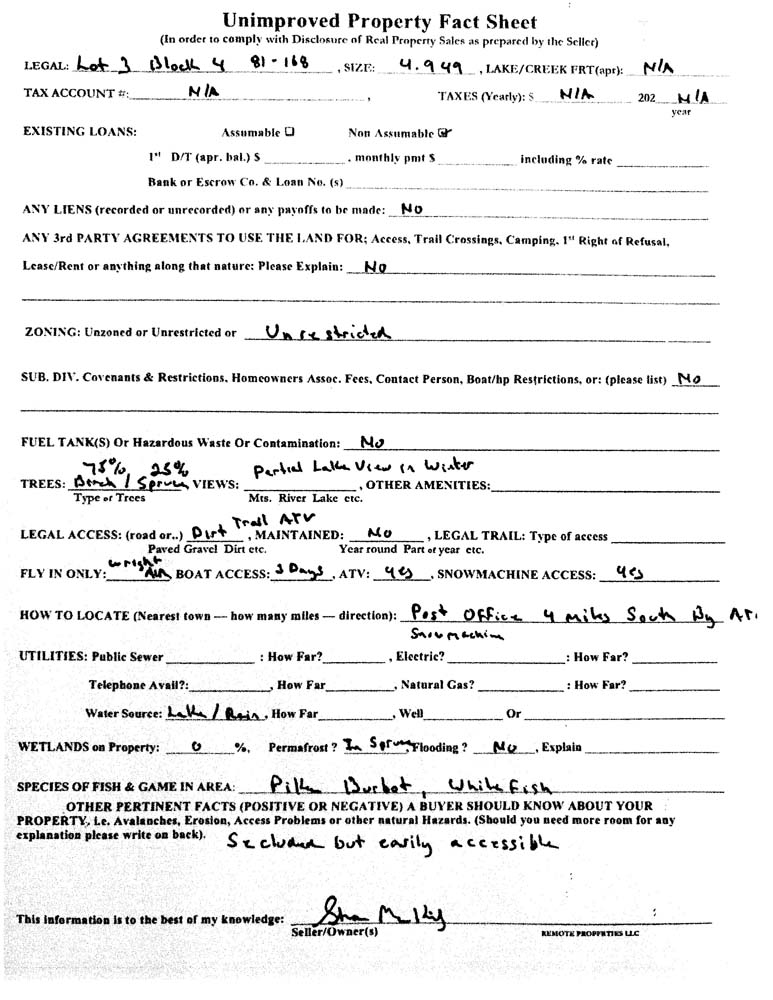 Unimproved Property Fact Sheet
(In order to comply with Disclosure of Real Property Sales as prepared by the Seller)
LEGAL: Lot 3 Block 4 81-168 , SIZE: 4.949 , LAKE/CREEK FRT(apr): N/A
TAX ACCOUNT #: N/A , TAXES (Yearly): $ N/A 202 N/A
year
EXISTING LOANS: Assumable ☐ Non Assumable ☑
1st D/T (apr. bal.) $ , monthly pmt $ including % rate
Bank or Escrow Co. & Loan No. (s)
ANY LIENS (recorded or unrecorded) or any payoffs to be made: No
ANY 3rd PARTY AGREEMENTS TO USE THE LAND FOR; Access, Trail Crossings, Camping, 1st Right of Refusal,
Lease/Rent or anything along that nature: Please Explain: No
ZONING: Unzoned or Unrestricted or Unrestricted
SUB. DIV. Covenants & Restrictions, Homeowners Assoc. Fees, Contact Person, Boat/hp Restrictions, or: (please list) No
FUEL TANK(S) Or Hazardous Waste Or Contamination: No
75% 25% Partial Lake View in Winter
TREES: Birch / Spruce, VIEWS: , OTHER AMENITIES:
Type or Trees Mts. River Lake etc.
Trail ATV
LEGAL ACCESS: (road or..) Dirt , MAINTAINED: No , LEGAL TRAIL: Type of access
Paved Gravel Dirt etc. Year round Part of year etc.
wright
FLY IN ONLY: Air BOAT ACCESS: 3 Days , ATV: yes , SNOWMACHINE ACCESS: yes
HOW TO LOCATE (Nearest town — how many miles — direction): Post Office 4 miles South By AT
Snowmachine
UTILITIES: Public Sewer : How Far? , Electric? : How Far?
Telephone Avail?: , How Far , Natural Gas? : How Far?
Water Source: Lake / Rain , How Far , Well Or
WETLANDS on Property: 0 %, Permafrost ? In Spruce Flooding ? No , Explain
SPECIES OF FISH & GAME IN AREA: Pike Burbot, White Fish
OTHER PERTINENT FACTS (POSITIVE OR NEGATIVE) A BUYER SHOULD KNOW ABOUT YOUR
PROPERTY, i.e. Avalanches, Erosion, Access Problems or other natural Hazards. (Should you need more room for any
explanation please write on back). Secluded but easily accessible
This information is to the best of my knowledge:
Seller/Owner(s) REMOTE PROPERTIES LLC